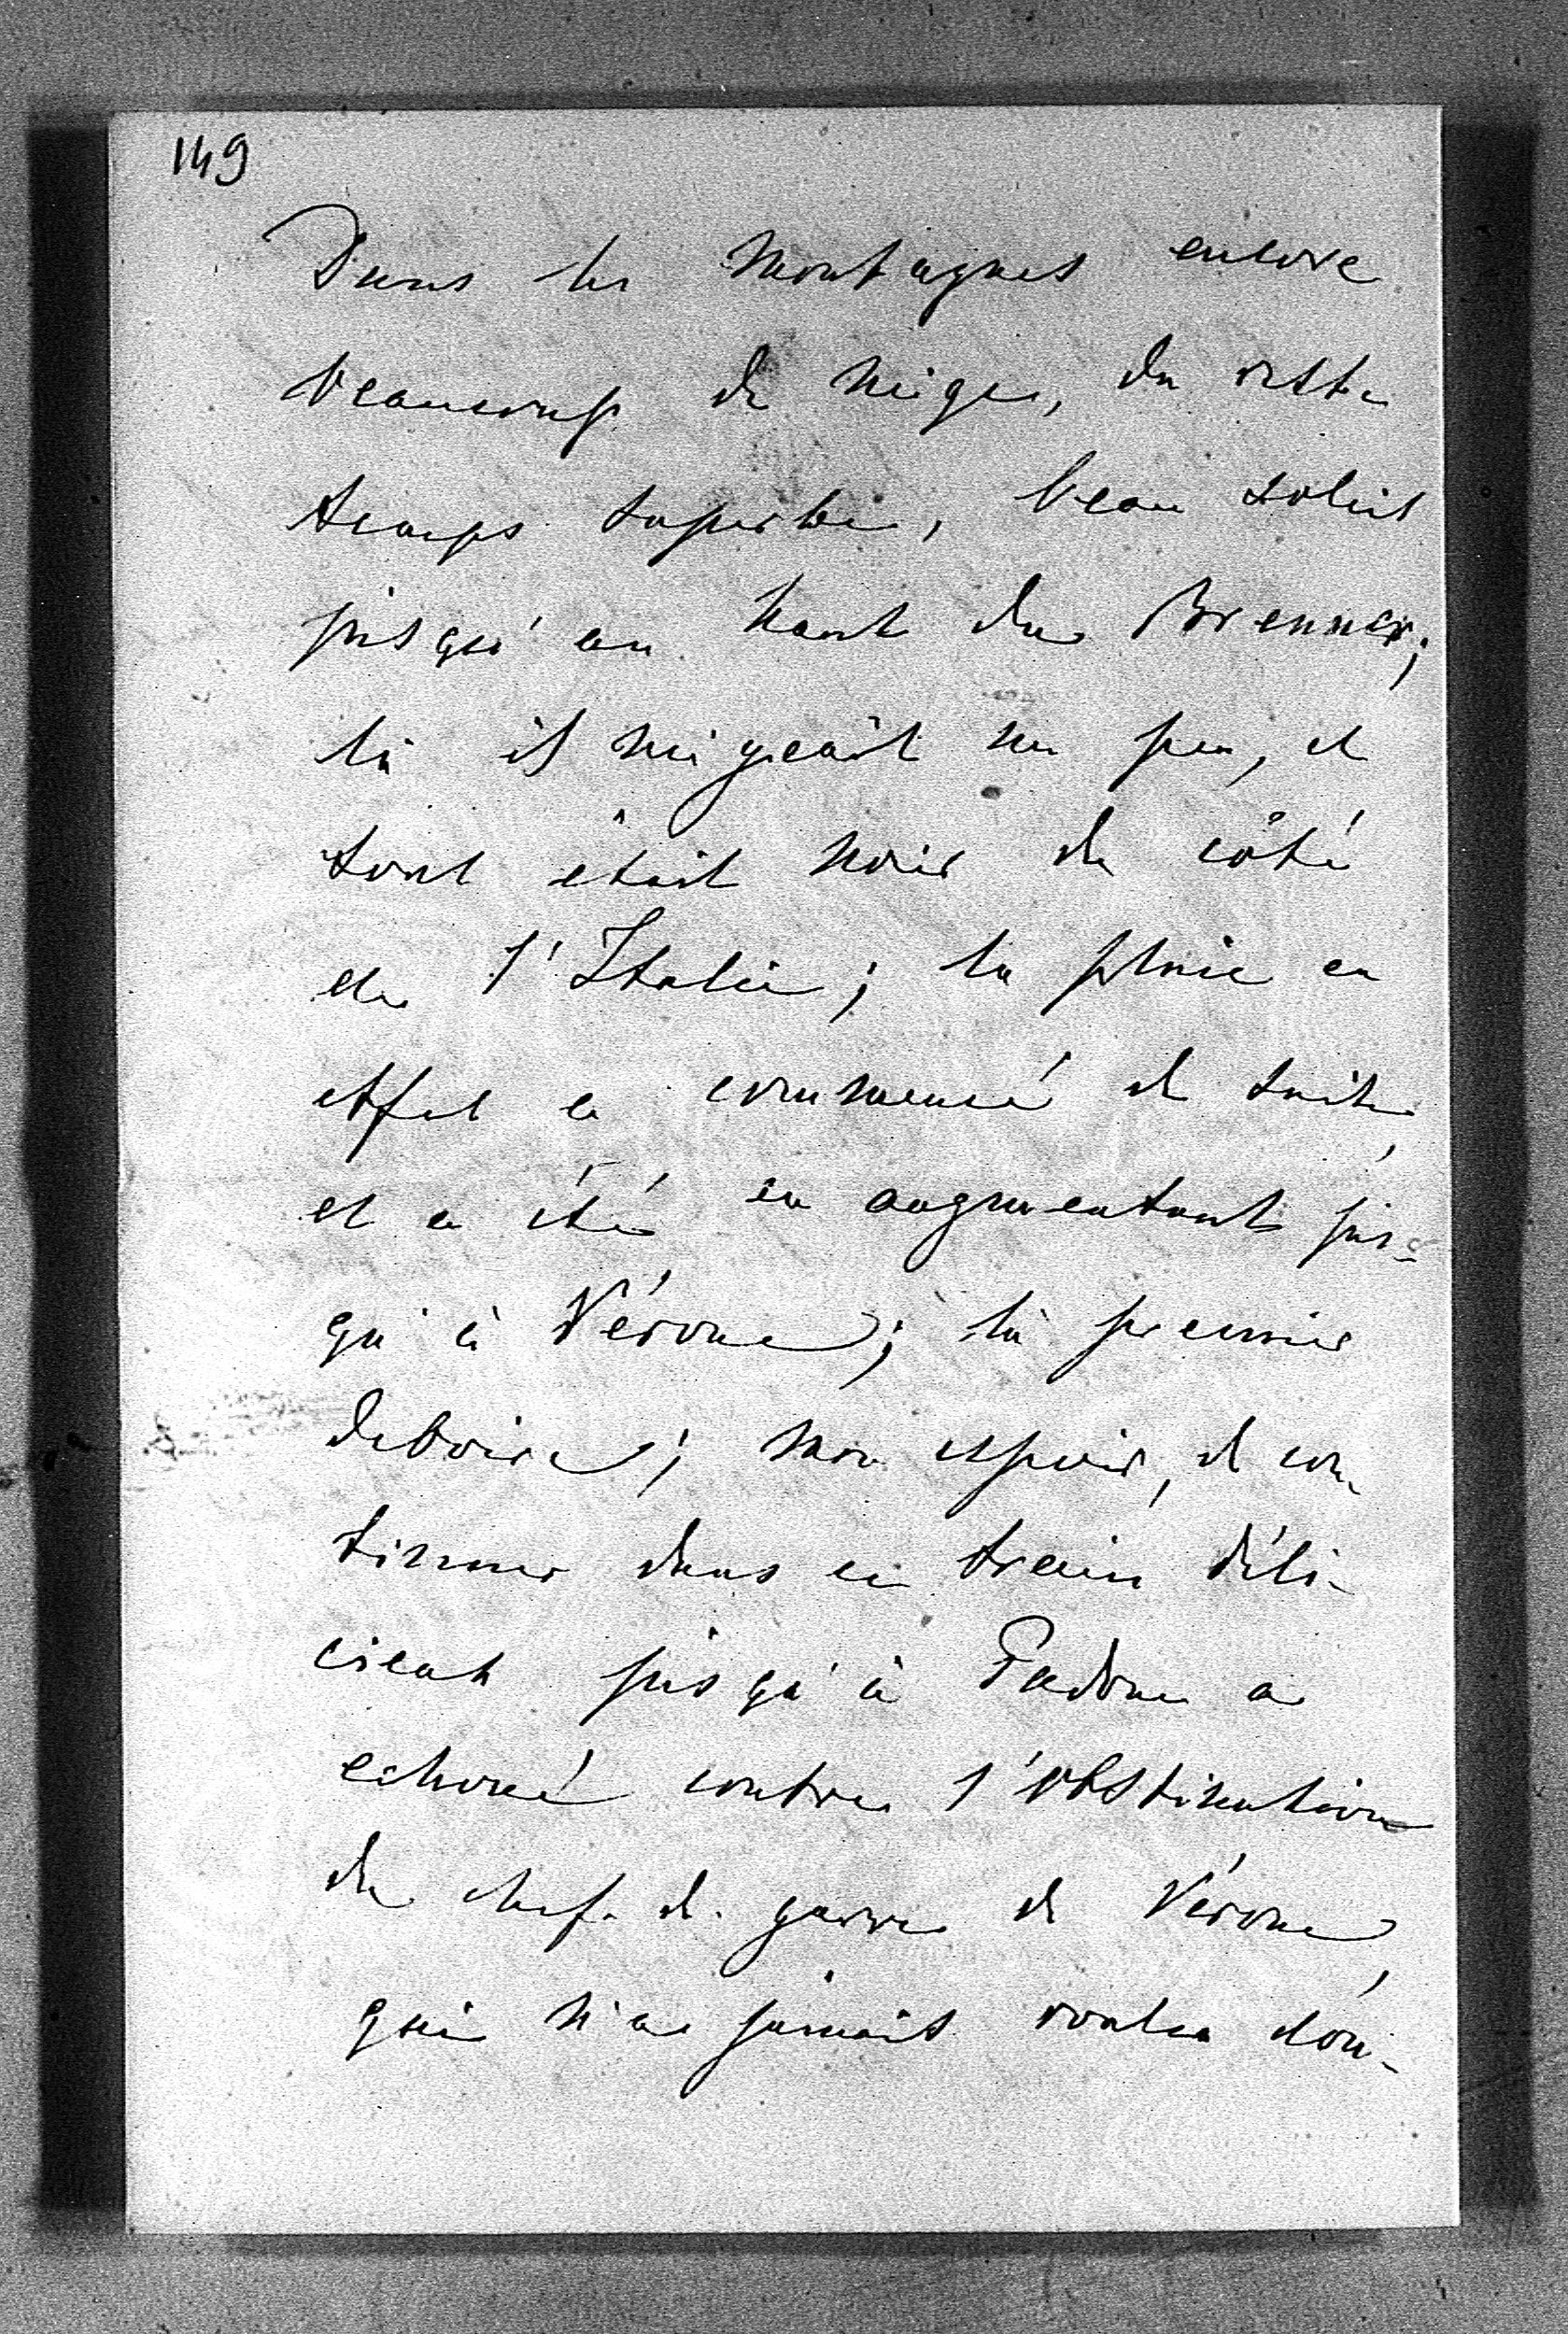 149
Dans les montagnes encore
beaucoup de neige, du reste
temps superbe, beau soleil
jusqu'au haut du Brenner;
là il neigeait un peu, et
tout était noir du côté
de l'Italie; la pluie en
effet a commencé de suite,
et a été en augmentant jus-
qu'à Vérone; là premier
deboire; mon espoir, de con-
tinuer dans ce train déli-
cieux jusqu'à Padoue a
echoué contre l'obstination
du chef de garre de Vérone,
qui n'a jamais voulu don-